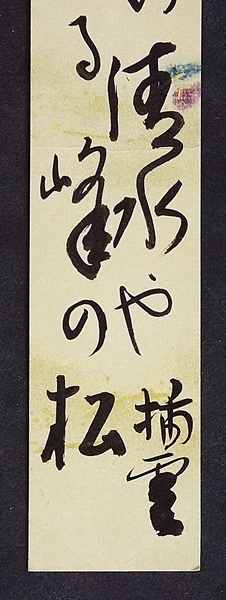 清水や
る峰の松
楠雲